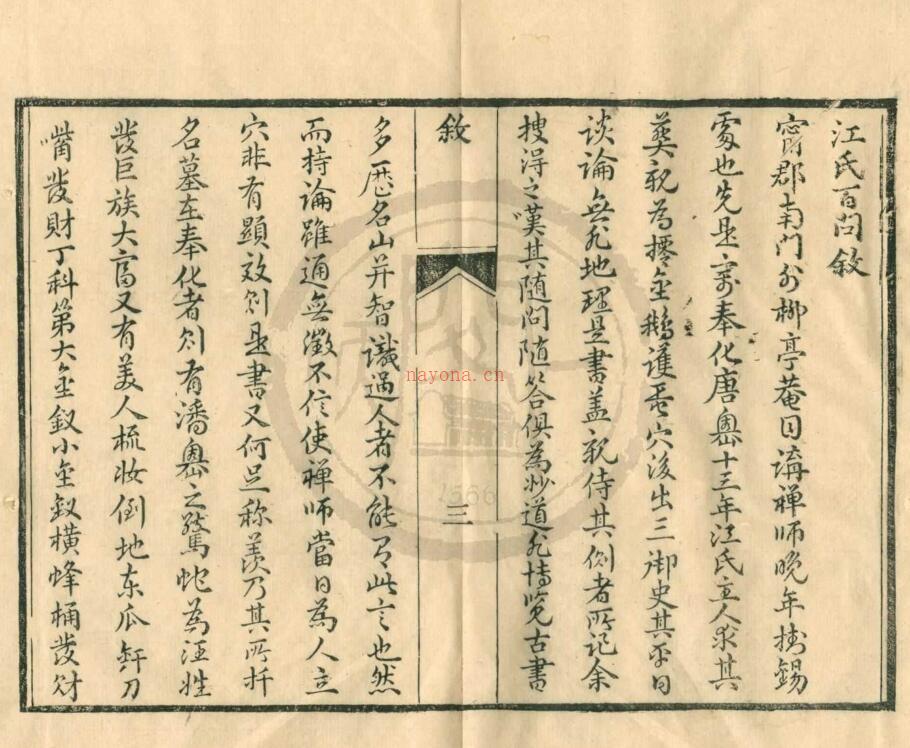 江氏百问敘
甯郡南门外柳亭菴目講禅师晚年挂錫
處也先是寓奉化唐嶴十三年江氏主人求其
葬親為擇金鵝護蛋穴後出三御史其平日
谈論無非地理是書盖親侍其側者所记余
搜得之嘆其随问随答俱為妙道非博览古書
敘
三
多歷名山并智識過人者不能為此言也然
而持論雖通無徵不信使禅师當日為人立
穴非有顯效則是書又何足称羡乃其所扦
名墓在奉化者則有潘嶴之鶩蛇為汪姓
發巨族大富又有美人梳妆倒地东瓜
嘴發財丁科第大金釵小金釵横蜂桶發财
nayona.cn
1566